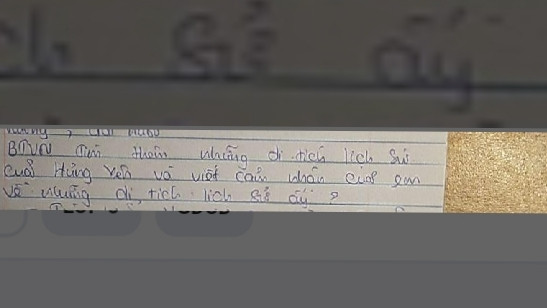 ch sử ấy
BTVN Tìm thêm những di tích lịch sử
của Hưng Yên và viết cảm nhận của em
về những di tích lịch sử ấy ?